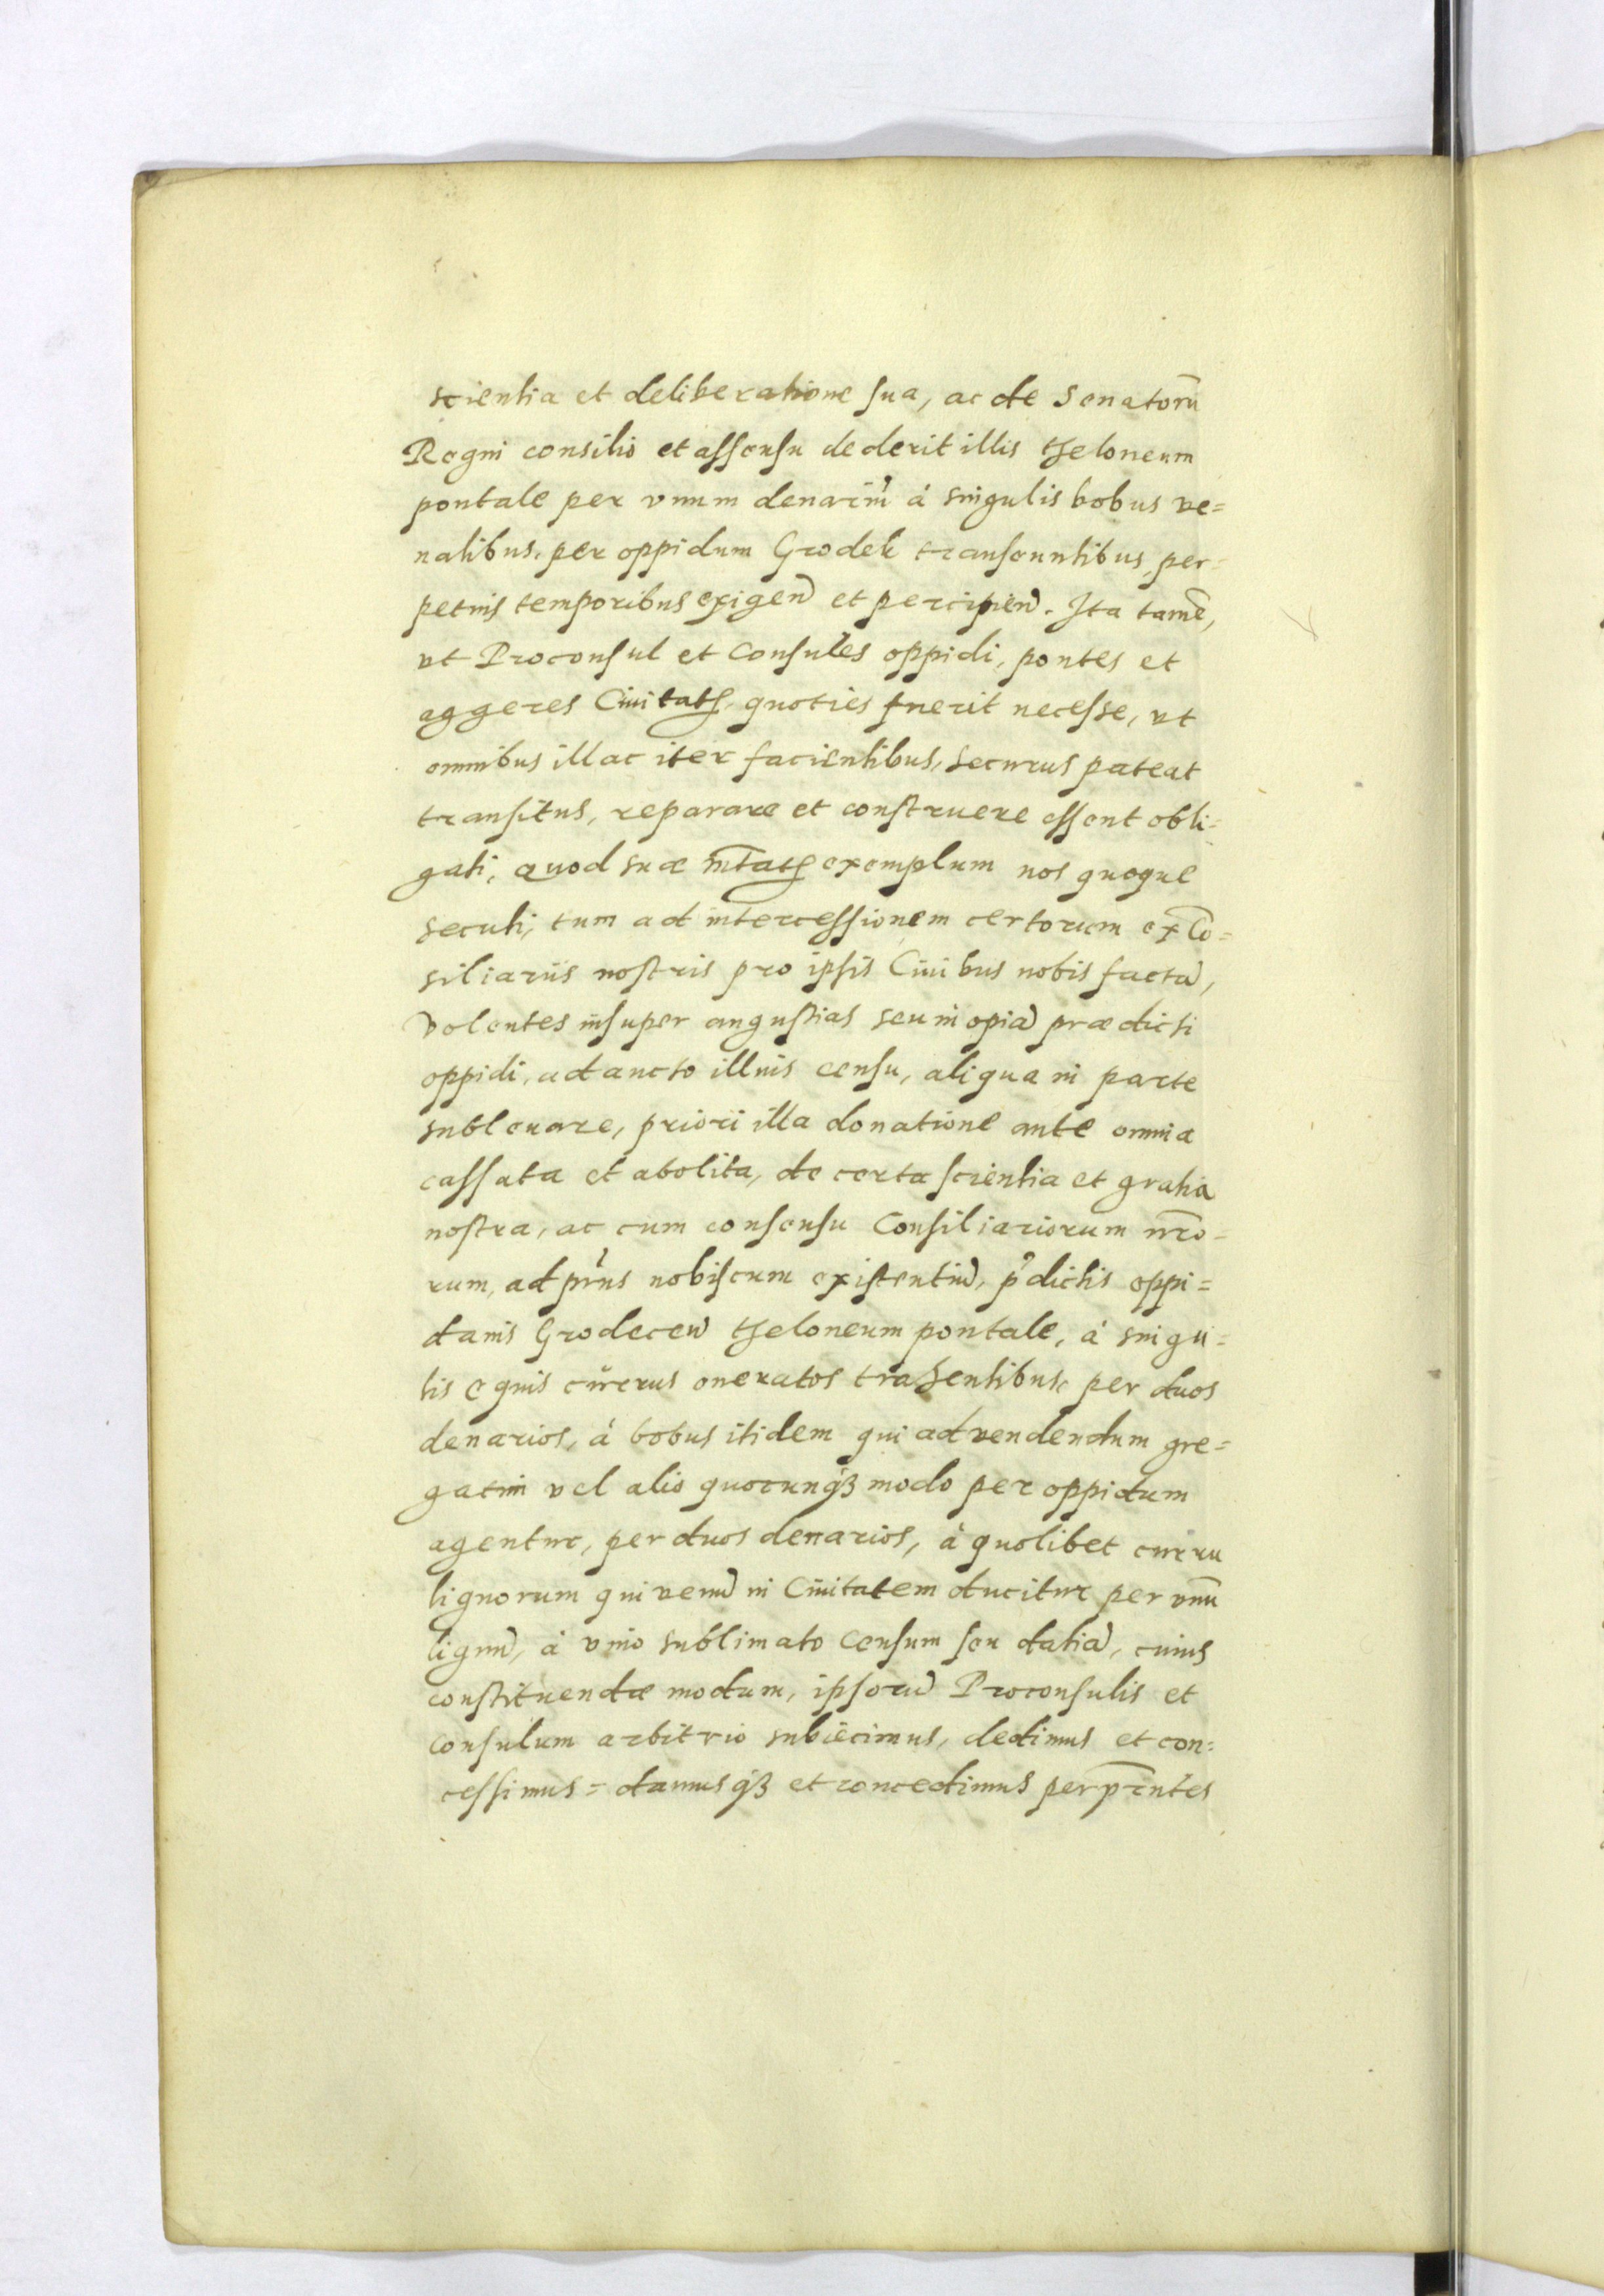 scientia et deliberatione sua, ac de Senatorū
Regni consilio et assensu dederit illis theloneum
pontale per vnum denariũ à singulis bobus ve=
nalibus, per oppidum Grodek transeuntibus, per=
petuis temporibus exigen̄ et percipien̄. Ita tamē,
vt Proconsul et Consules oppidi, pontes et
aggeres Ciuitatꝭ, quoties fuerit necesse, vt
omnibus illac iter facientibus, securus pateat
transitus, reparare et construere essent obli=
gati, quod suæ mt̄atꝭ exemplum nos quoque
secuti, tum ad intercessionem certorum ex Cō=
siliariis nostris pro ipsis Ciuibus nobis factā,
Volentes insuper angustias seu inopiā prædicti
oppidi, adaucto illius censu, aliqua in parte
subleuare, priori illa donatione ante omnia
cassata et abolita, de certa scientia et gratia
nostra, ac cum consensu Consiliariorum nr̄o=
rum, ad prñs nobiscum existentiū, p̃dictis oppi=
danis Grodecen̄ theloneum pontale, à singu=
lis equis currus oneratos trahentibus, per duos
denarios, à bobus itidem qui ad vendendum gre=
gatim vel alio quocunqꝫ modo per oppidum
agentur, per duos denarios, à quolibet curru
lignorum qui venū in Ciuitatem ducitur per vnū
lignū, à vino sublimato Censum seu datiā, cuius
constituendæ modum, ipsorū Proconsulis et
Consulum arbitrio subiecimus, dedimus et con=
cessimus = damusqꝫ et concedimus per pr̄ntes